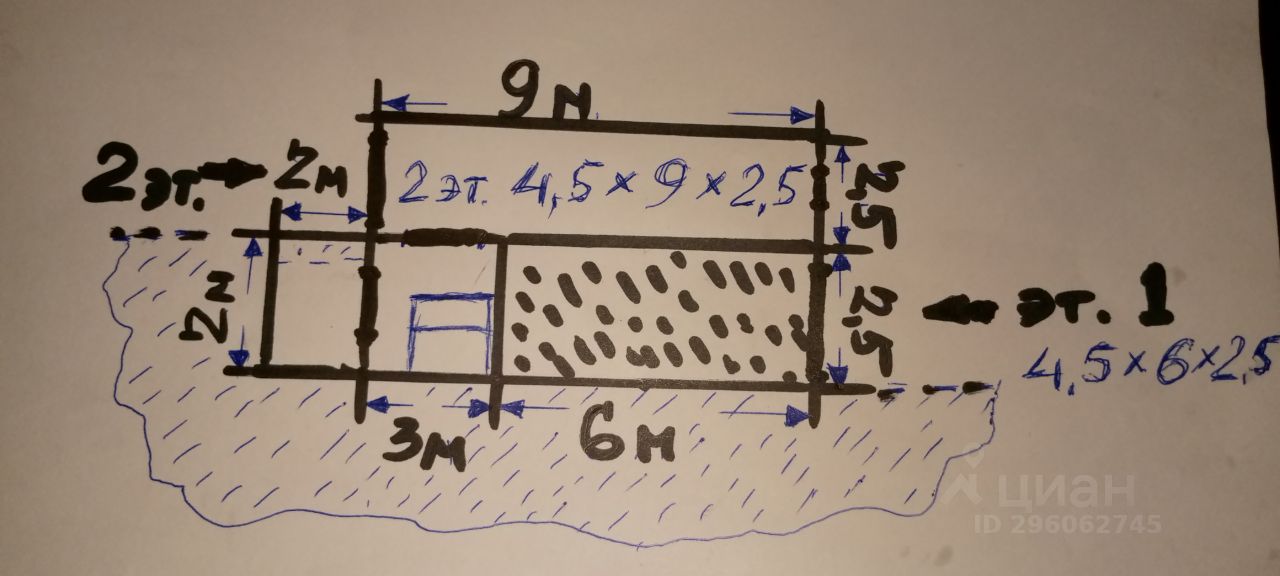 9м
2эт.
2м
2эт. 4,5×9×2,5
2,5
2м
2,5
эт. 1
4,5×6×2,5
3м
6м
циан
ID 296062745